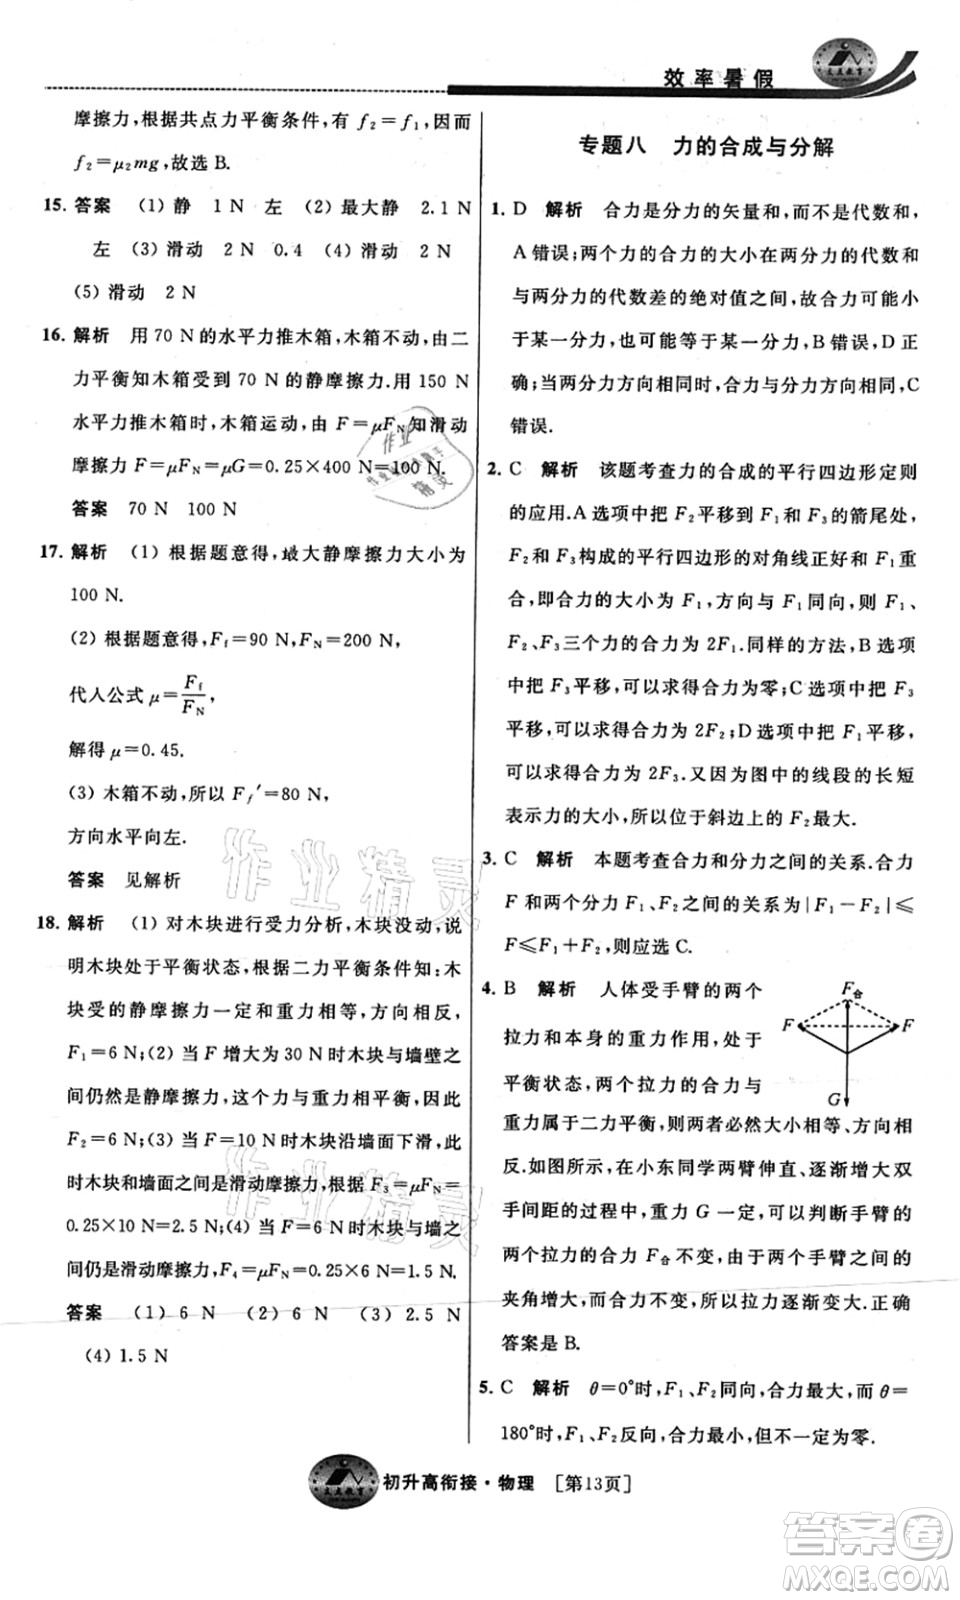 效率暑假
摩擦力,根据共点力平衡条件,有 f₂＝f₁,因而
f₂＝μ₂mg,故选 B.
15. 答案 (1) 静 1 N 左 (2) 最大静 2.1 N
左 (3) 滑动 2 N 0.4 (4) 滑动 2 N
(5) 滑动 2 N
16. 解析 用 70 N 的水平力推木箱,木箱不动,由二
力平衡知木箱受到 70 N 的静摩擦力.用 150 N
水平力推木箱时,木箱运动,由 F＝μF_N 知滑动
摩擦力 F＝μF_N＝μG＝0.25×400 N＝100 N.
答案 70 N 100 N
17. 解析 (1) 根据题意得,最大静摩擦力大小为
100 N.
(2) 根据题意得,F_f＝90 N,F_N＝200 N,
代人公式 μ＝F_f/F_N,
解得 μ＝0.45.
(3) 木箱不动,所以 F_f′＝80 N,
方向水平向左.
答案 见解析
18. 解析 (1) 对木块进行受力分析,木块没动,说
明木块处于平衡状态,根据二力平衡条件知:木
块受的静摩擦力一定和重力相等,方向相反,
F₁＝6 N;(2) 当 F 增大为 30 N 时木块与墙壁之
间仍然是静摩擦力,这个力与重力相平衡,因此
F₂＝6 N;(3) 当 F＝10 N 时木块沿墙面下滑,此
时木块和墙面之间是滑动摩擦力,根据 F₃＝μF_N＝
0.25×10 N＝2.5 N;(4) 当 F＝6 N 时木块与墙之
间仍是滑动摩擦力,F₄＝μF_N＝0.25×6 N＝1.5 N.
答案 (1) 6 N (2) 6 N (3) 2.5 N
(4) 1.5 N
专题八 力的合成与分解
1. D 解析 合力是分力的矢量和,而不是代数和,
A 错误;两个力的合力的大小在两分力的代数和
与两分力的代数差的绝对值之间,故合力可能小
于某一分力,也可能大于某一分力,B 错误,D 正
确;当两分力方向相同时,合力与分力方向相同,C
错误.
2. C 解析 该题考查力的合成的平行四边形定则
的应用.A 选项中把 F₂ 平移到 F₁ 和 F₃ 的箭尾处,
F₂ 和 F₃ 构成的平行四边形的对角线正好和 F₁ 重
合,即合力的大小为 F₁,方向与 F₁ 同向,则 F₁、
F₂、F₃ 三个力的合力为 2F₁.同样的方法,B 选项
中把 F₃ 平移,可以求得合力为零;C 选项中把 F₃
平移,可以求得合力为 2F₂;D 选项中把 F₁ 平移,
可以求得合力为 2F₃.又因为图中的线段的长短
表示力的大小,所以位于斜边上的 F₂ 最大.
3. C 解析 本题考查合力和分力之间的关系.合力
F 和两个分力 F₁、F₂ 之间的关系为|F₁－F₂|≤
F≤F₁＋F₂,则应选 C.
4. B 解析 人体受手臂的两个
拉力和本身的重力作用,处于
平衡状态,两个拉力的合力与
重力属于二力平衡,则两者必然大小相等、方向相
反.如图所示,在小东同学两臂伸直、逐渐增大双
手间距的过程中,重力 G 一定,可以判断手臂的
两个拉力的合力 F合 不变,由于两个手臂之间的
夹角增大,而合力不变,所以拉力逐渐变大.正确
答案是 B.
F合
F
F
G
5. C 解析 θ＝0°时,F₁、F₂ 同向,合力最大,而 θ＝
180°时,F₁、F₂ 反向,合力最小,但不一定为零.
初升高衔接·物理 [第13页]
作业精灵
作业精灵
答案圈
MXQE.COM